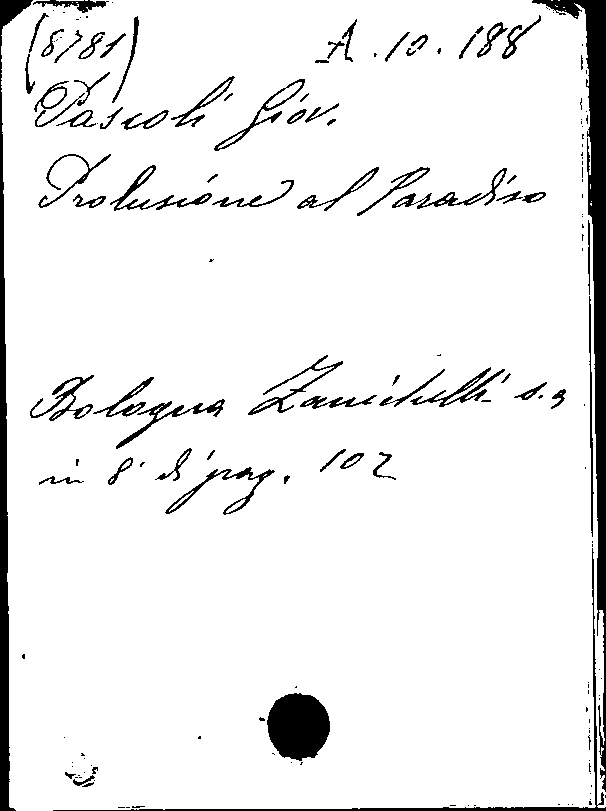 (8781) A. 10. 188
Pascoli Giov.
Prolusione al Paradiso
Bologna Zanichelli s. a
in 8° di pag. 102